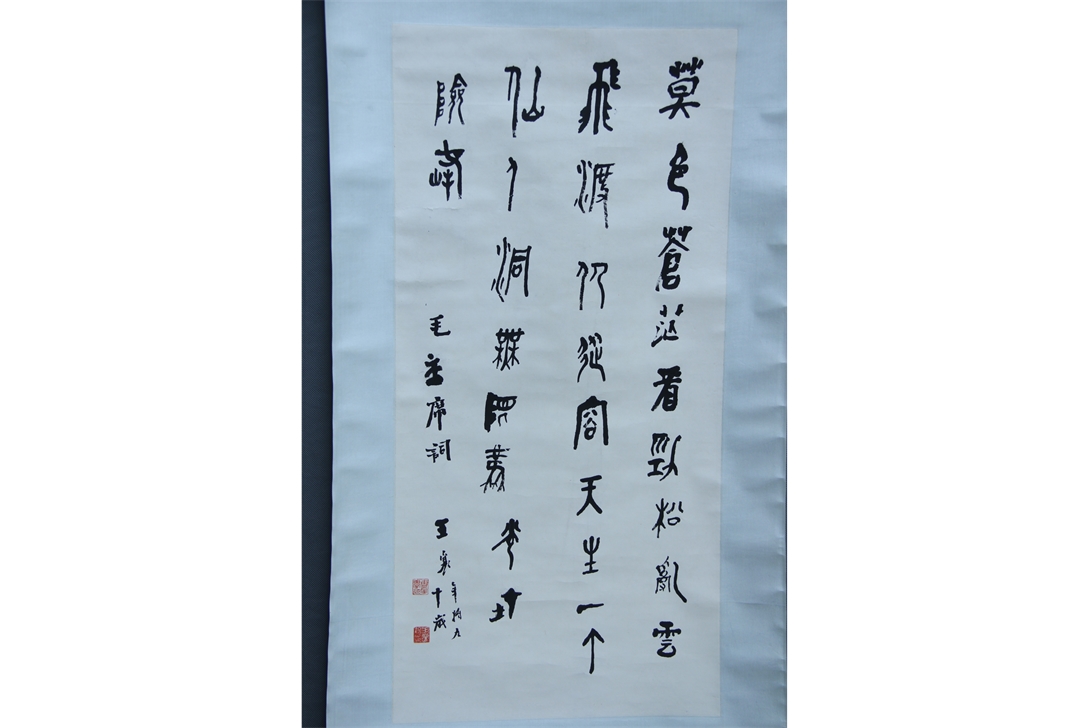 莫色蒼茫看勁松亂雲
飛渡仍從容天生一个
仙人洞無限風光在
險峰
毛主席詞
王襄
年約九
十歲